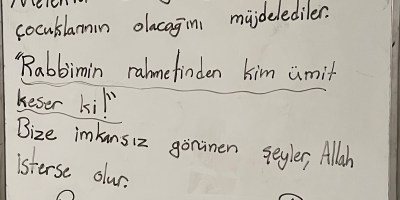 çocuklarının olacağını müjdelediler.
"Rabbimin rahmetinden kim ümit
keser ki!"
Bize imkansız görünen şeyler, Allah
isterse olur.